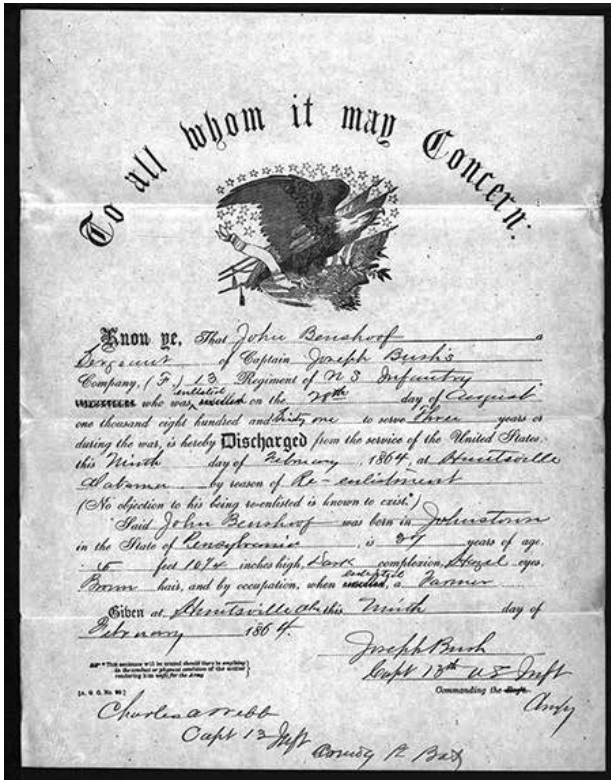 To all whom it may Concern:
Know ye, That John Benshoof a
Sergeant of Captain Joseph Bush's
Company, (F,) 13 Regiment of U S Infantry
who was enlisted on the 20th day of August
one thousand eight hundred and Sixty one to serve Three years or
during the war, is hereby Discharged from the service of the United States,
this Ninth day of February, 1864, at Huntsville
Alabama by reason of Re-enlistment
(No objection to his being re-enlisted is known to exist.*)
Said John Benshoof was born in Johnstown
in the State of Pencsylvania, is years of age,
feet inches high, Dark complexion, Hazel eyes,
Brown hair, and by occupation, when enlisted, a Farmer
Given at Huntsville Ala this Ninth day of
February 1864.
Joseph Bush
Capt 13th U S Inft
* This sentence will be erased should there be anything
in the conduct or physical condition of the soldier
rendering him unfit for the Army.
[A. G. O. No. 99.]
Commanding the
Charles A Webb
Capt 13 Inft